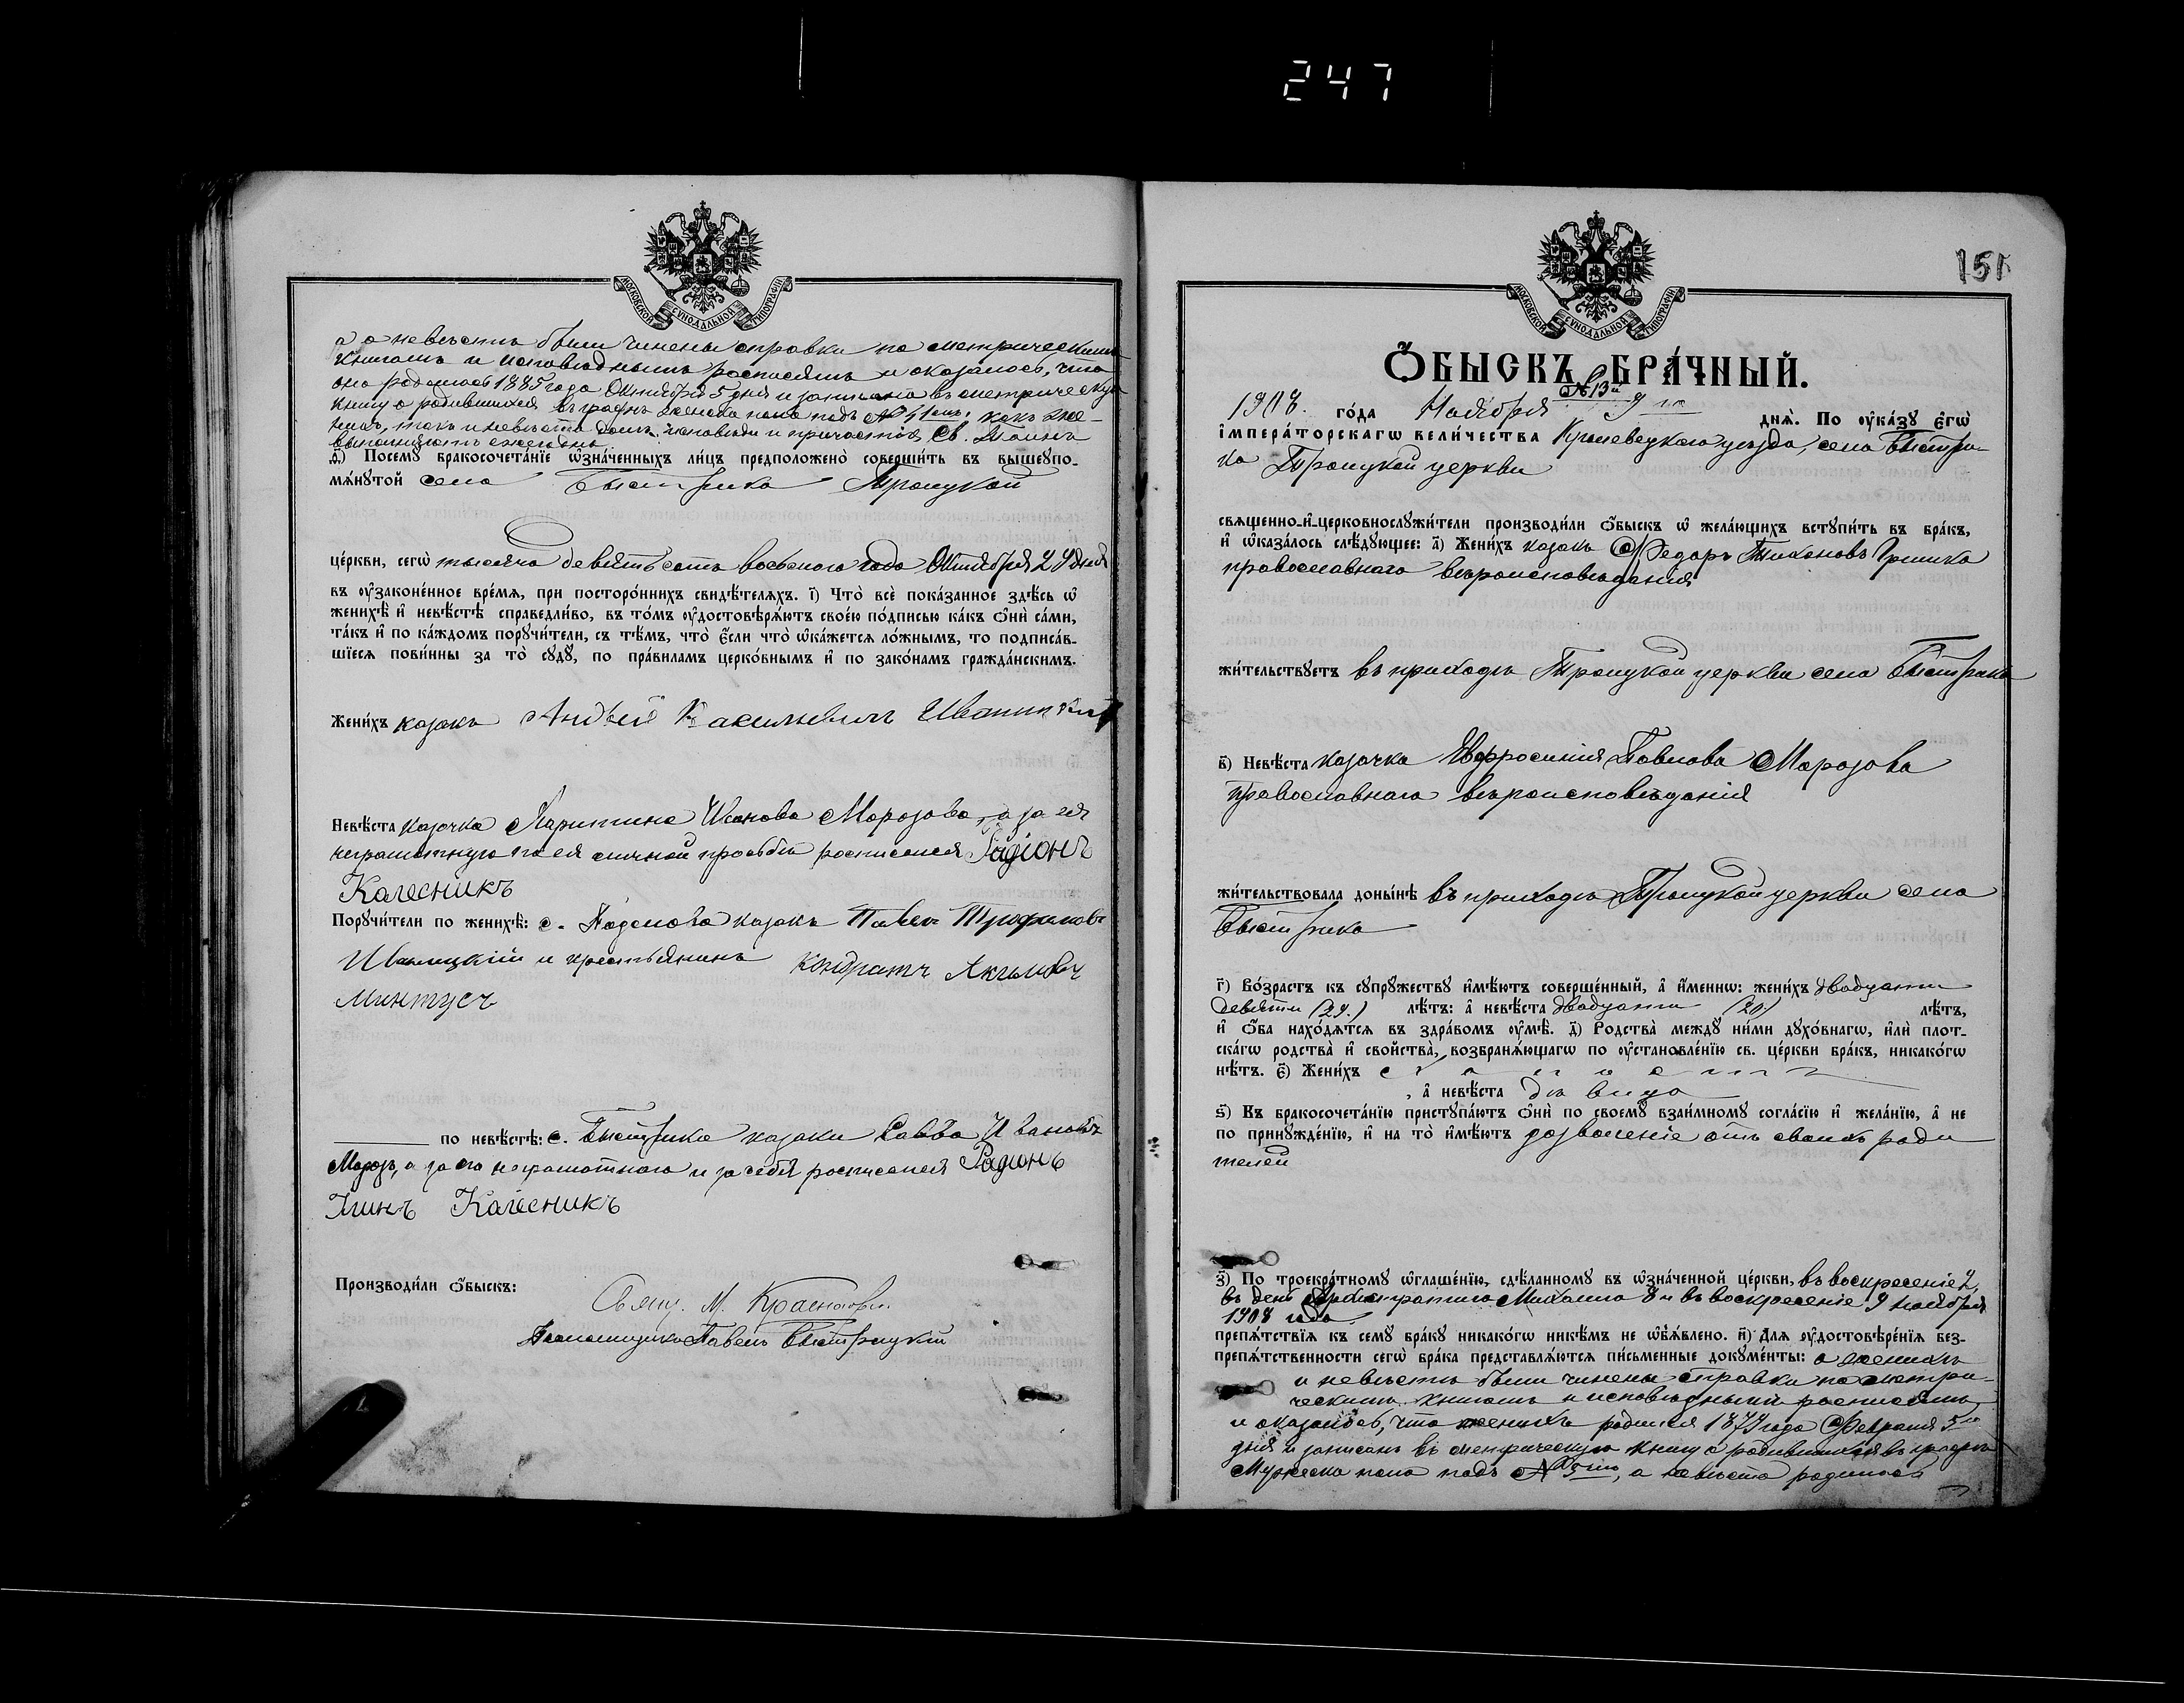 247
МОСКОВСКОЙ СѴНОДАЛЬНОЙ ТИПОГРАФІИ
а о невѣстѣ были чинены справки по метрическимъ
книгамъ и исповѣднымъ росписямъ и оказалось, что
она родилась 1885 года Октября 5 дня и записана въ метрическую
книгу о родившихся въ графѣ женска пола подъ № какъ же-
нихъ, такъ и невѣста долгъ исповѣди и причастія Св. Таинъ
выполняютъ ежегодно
Посему бракосочета́нїе ѡ҆зна́ченныхъ ли́цъ предположено̀ соверши́ть въ вышеупо-
мѧ́нутой села Быстрика Троицкой
це́ркви, сегѡ̀ тысяча девятьсотъ восьмого года Октября 29 дня
въ ᲂу҆зако́ненное вре́мѧ, при посторо́ннихъ свидѣ́телѧхъ. і҃) Что̀ всѐ пока́занное здѣ́сь ѡ҆
женихѣ̀ и҆ невѣ́стѣ справедли́во, въ то́мъ ᲂу҆достовѣрѧ́ютъ свое́ю по́дписью ка́къ ѻ҆нѝ са́ми,
та́къ и҆ по ка́ждомъ поручи́тели, съ тѣ́мъ, что̀ є҆́сли что̀ ѡ҆ка́жетсѧ ло́жнымъ, то подписа́в-
шїесѧ пови́нны за то̀ суду̀, по пра́виламъ церко́внымъ и҆ по зако́намъ гражда́нскимъ.
Жени́хъ казакъ Андрей Васильевичъ
Невѣ́ста казачка Харитина Иванова Морозова, а за ея
неграмотную по ея личной просьбѣ росписался Радіонъ
Калесникъ
Поручи́тели по женихѣ̀: с. казакъ Павелъ Трофимовъ
Иваницкій и крестьянинъ Кондратъ Акимовъ
Минтусъ
по невѣ́стѣ: с. Быстрика казаки Савва Ивановъ
Морозъ, а за его неграмотнаго и за себя росписался Радионъ
Калесникъ
Производи́ли ѻ҆́быскъ:
Свящ. М.
Псаломщикъ Павелъ Быстрицкій
151
МОСКОВСКОЙ СѴНОДАЛЬНОЙ ТИПОГРАФІИ
Ѻ҆́БЫСКЪ БРА́ЧНЫЙ.
№ 13й
1908. го́да Ноября 9 го днѧ̀. По ᲂу҆ка́зу є҆гѡ̀
і҆мпера́торскагѡ вели́чества Кролевецкого уѣзда, села Быстри-
ка Троицкой церкви
свѧще́нно-и҆-церковнослужи́тели производи́ли ѻ҆́быскъ ѡ҆ жела́ющихъ вступи́ть въ бра́къ,
и҆ ѡ҆каза́лось слѣ́дующее: а҃) Жени́хъ казакъ Федоръ Тихоновъ Гришко
православнаго вѣроисповѣданія
жи́тельствуетъ въ приходѣ Троицкой церкви села Быстрика
в҃) Невѣ́ста казачка Евфросинія Павлова Морозова
православнаго вѣроисповѣданія
жи́тельствовала доны́нѣ въ приходѣ Троицкой церкви села
Быстрика
г҃) Во́зрастъ къ супру́жеству и҆мѣ́ютъ соверше́нный, а҆ и҆́меннѡ: жени́хъ двадцати
девяти (29.) лѣ́тъ: а҆ невѣ́ста двадцати (20.) лѣ́тъ,
и҆ ѻ҆́ба нахо́дѧтсѧ въ здра́вомъ ᲂу҆мѣ̀. д҃) Родства̀ между ни́ми духо́внагѡ, и҆лѝ плот-
ска́гѡ родства̀ и҆ сво́йства, возбранѧ́ющагѡ по ᲂу҆становле́нїю св. це́ркви бра́къ, никако́гѡ
нѣ́тъ. є҃) Жени́хъ холостъ
, а҆ невѣ́ста дѣвица
ѕ҃) Къ бракосочета́нїю приступа́ютъ ѻ҆нѝ по своему̀ взаи́мному согла́сїю и҆ жела́нїю, а҆ не
по принужде́нїю, и҆ на то̀ и҆мѣ́ютъ дозволеніе отъ своихъ роди
телей
з҃) По троекра́тному ѡ҆глаше́нїю, сдѣ́ланному въ ѡ҆зна́ченной це́ркви, въ воскресеніе 2,
въ день Архистратига Михаила 8 и въ воскресеніе 9 ноября
1908 года.
препѧ́тствїѧ къ сему̀ бра́ку никако́гѡ никѣ́мъ не ѡ҆б̾ѧ́влено. и҃) Длѧ ᲂу҆достовѣре́нїѧ без-
препѧ́тственности сегѡ̀ бра́ка представлѧ́ютсѧ пи́сьменные докуме́нты: о женихѣ
и невѣстѣ были чинены справки по метри-
ческимъ книгамъ и исповѣднымъ росписямъ
и оказалось, что женихъ родился 1879 года Февраля 5го
дня и записанъ въ метрическую книгу о родившихся въ графѣ
Мужеска пола подъ № 5мъ, а невѣста родилась